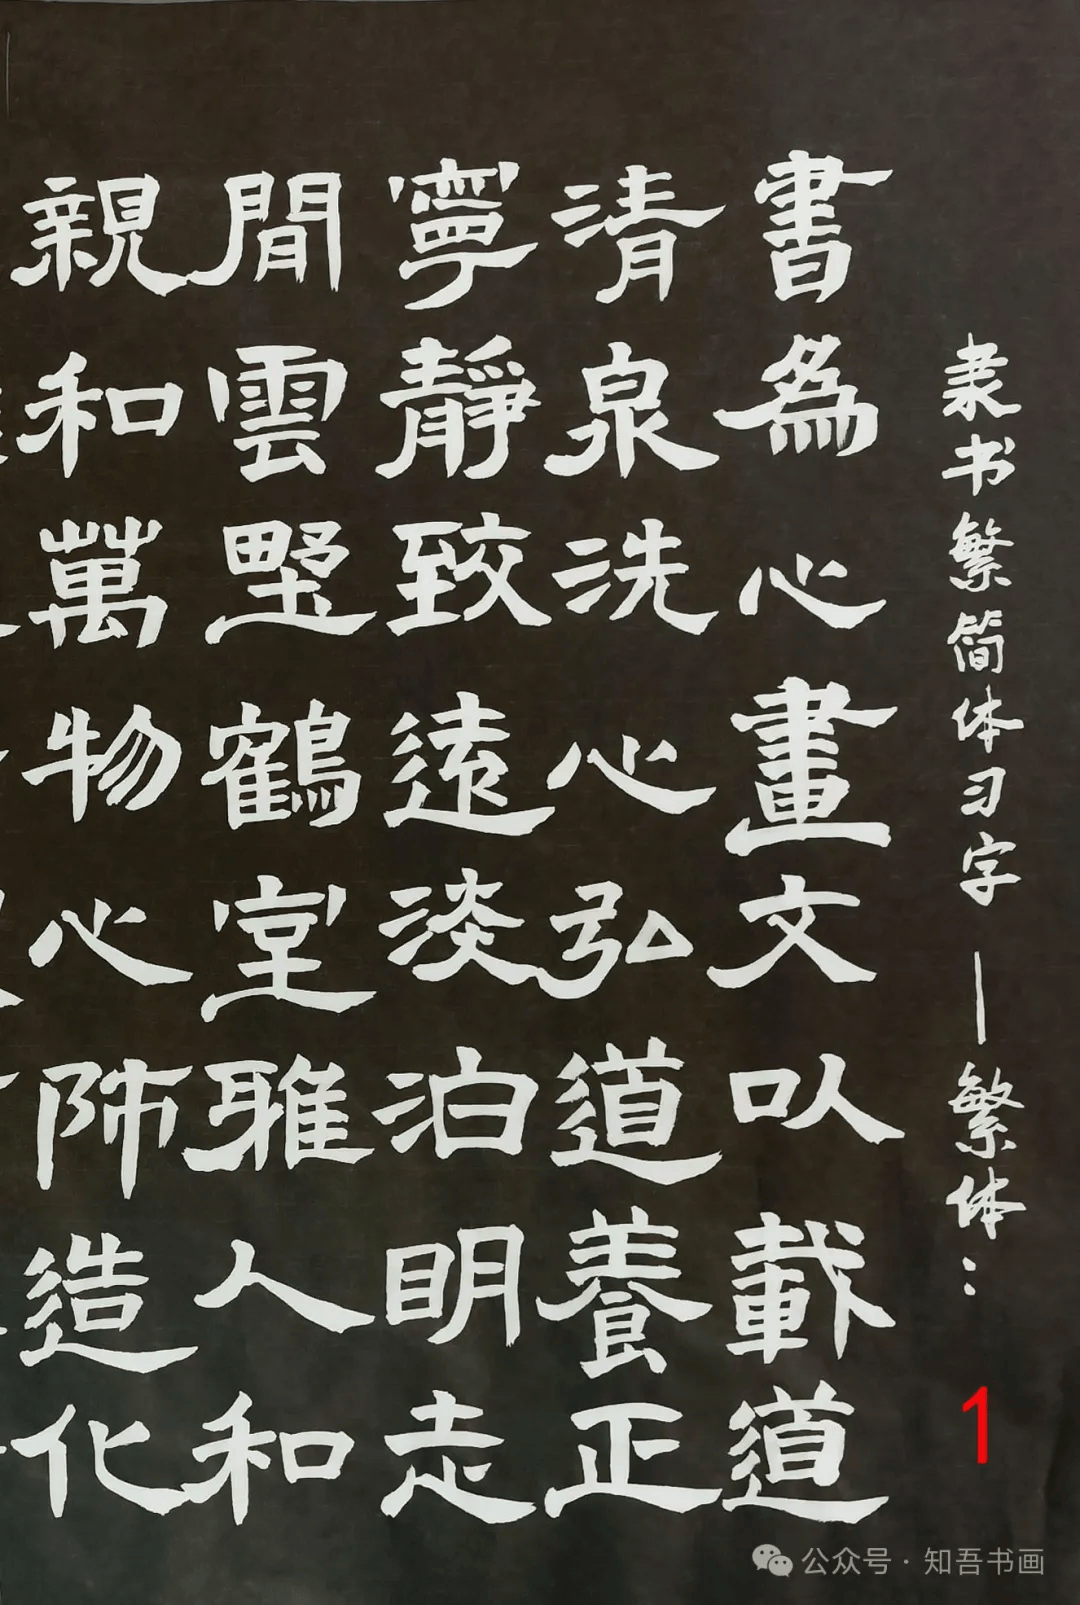 隶书繁简体习字——繁体：
1
書為心畫文以載道
清泉洗心弘道養正
寧靜致遠淡泊明走
閒雲野鶴堂雅人和
親和萬物心師造化
公众号·知吾书画